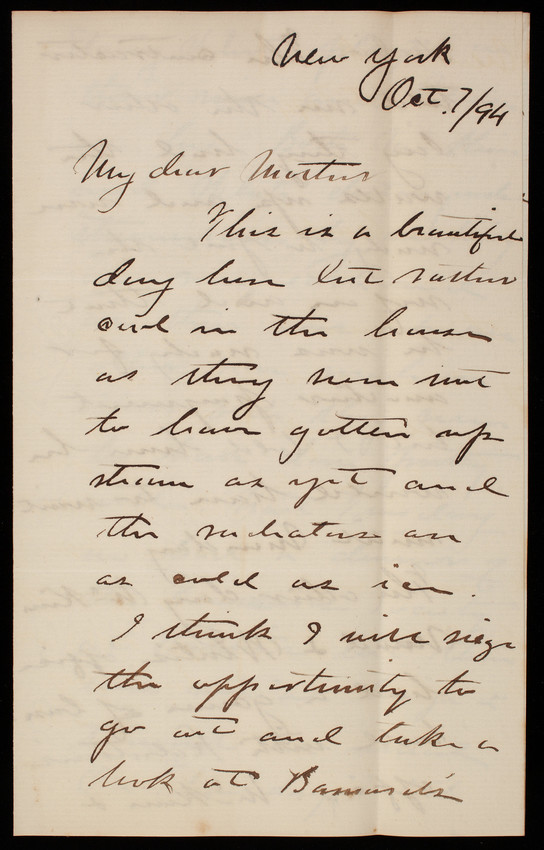 New York
Oct. 7/94
My dear Mother
This is a beautiful
day here but rather
cool in the house
as they seem not
to have gotten up
steam as yet and
the radiators are
as cold as ice.
I think I will seize
the opportunity to
go out and take a
look at Barnard's